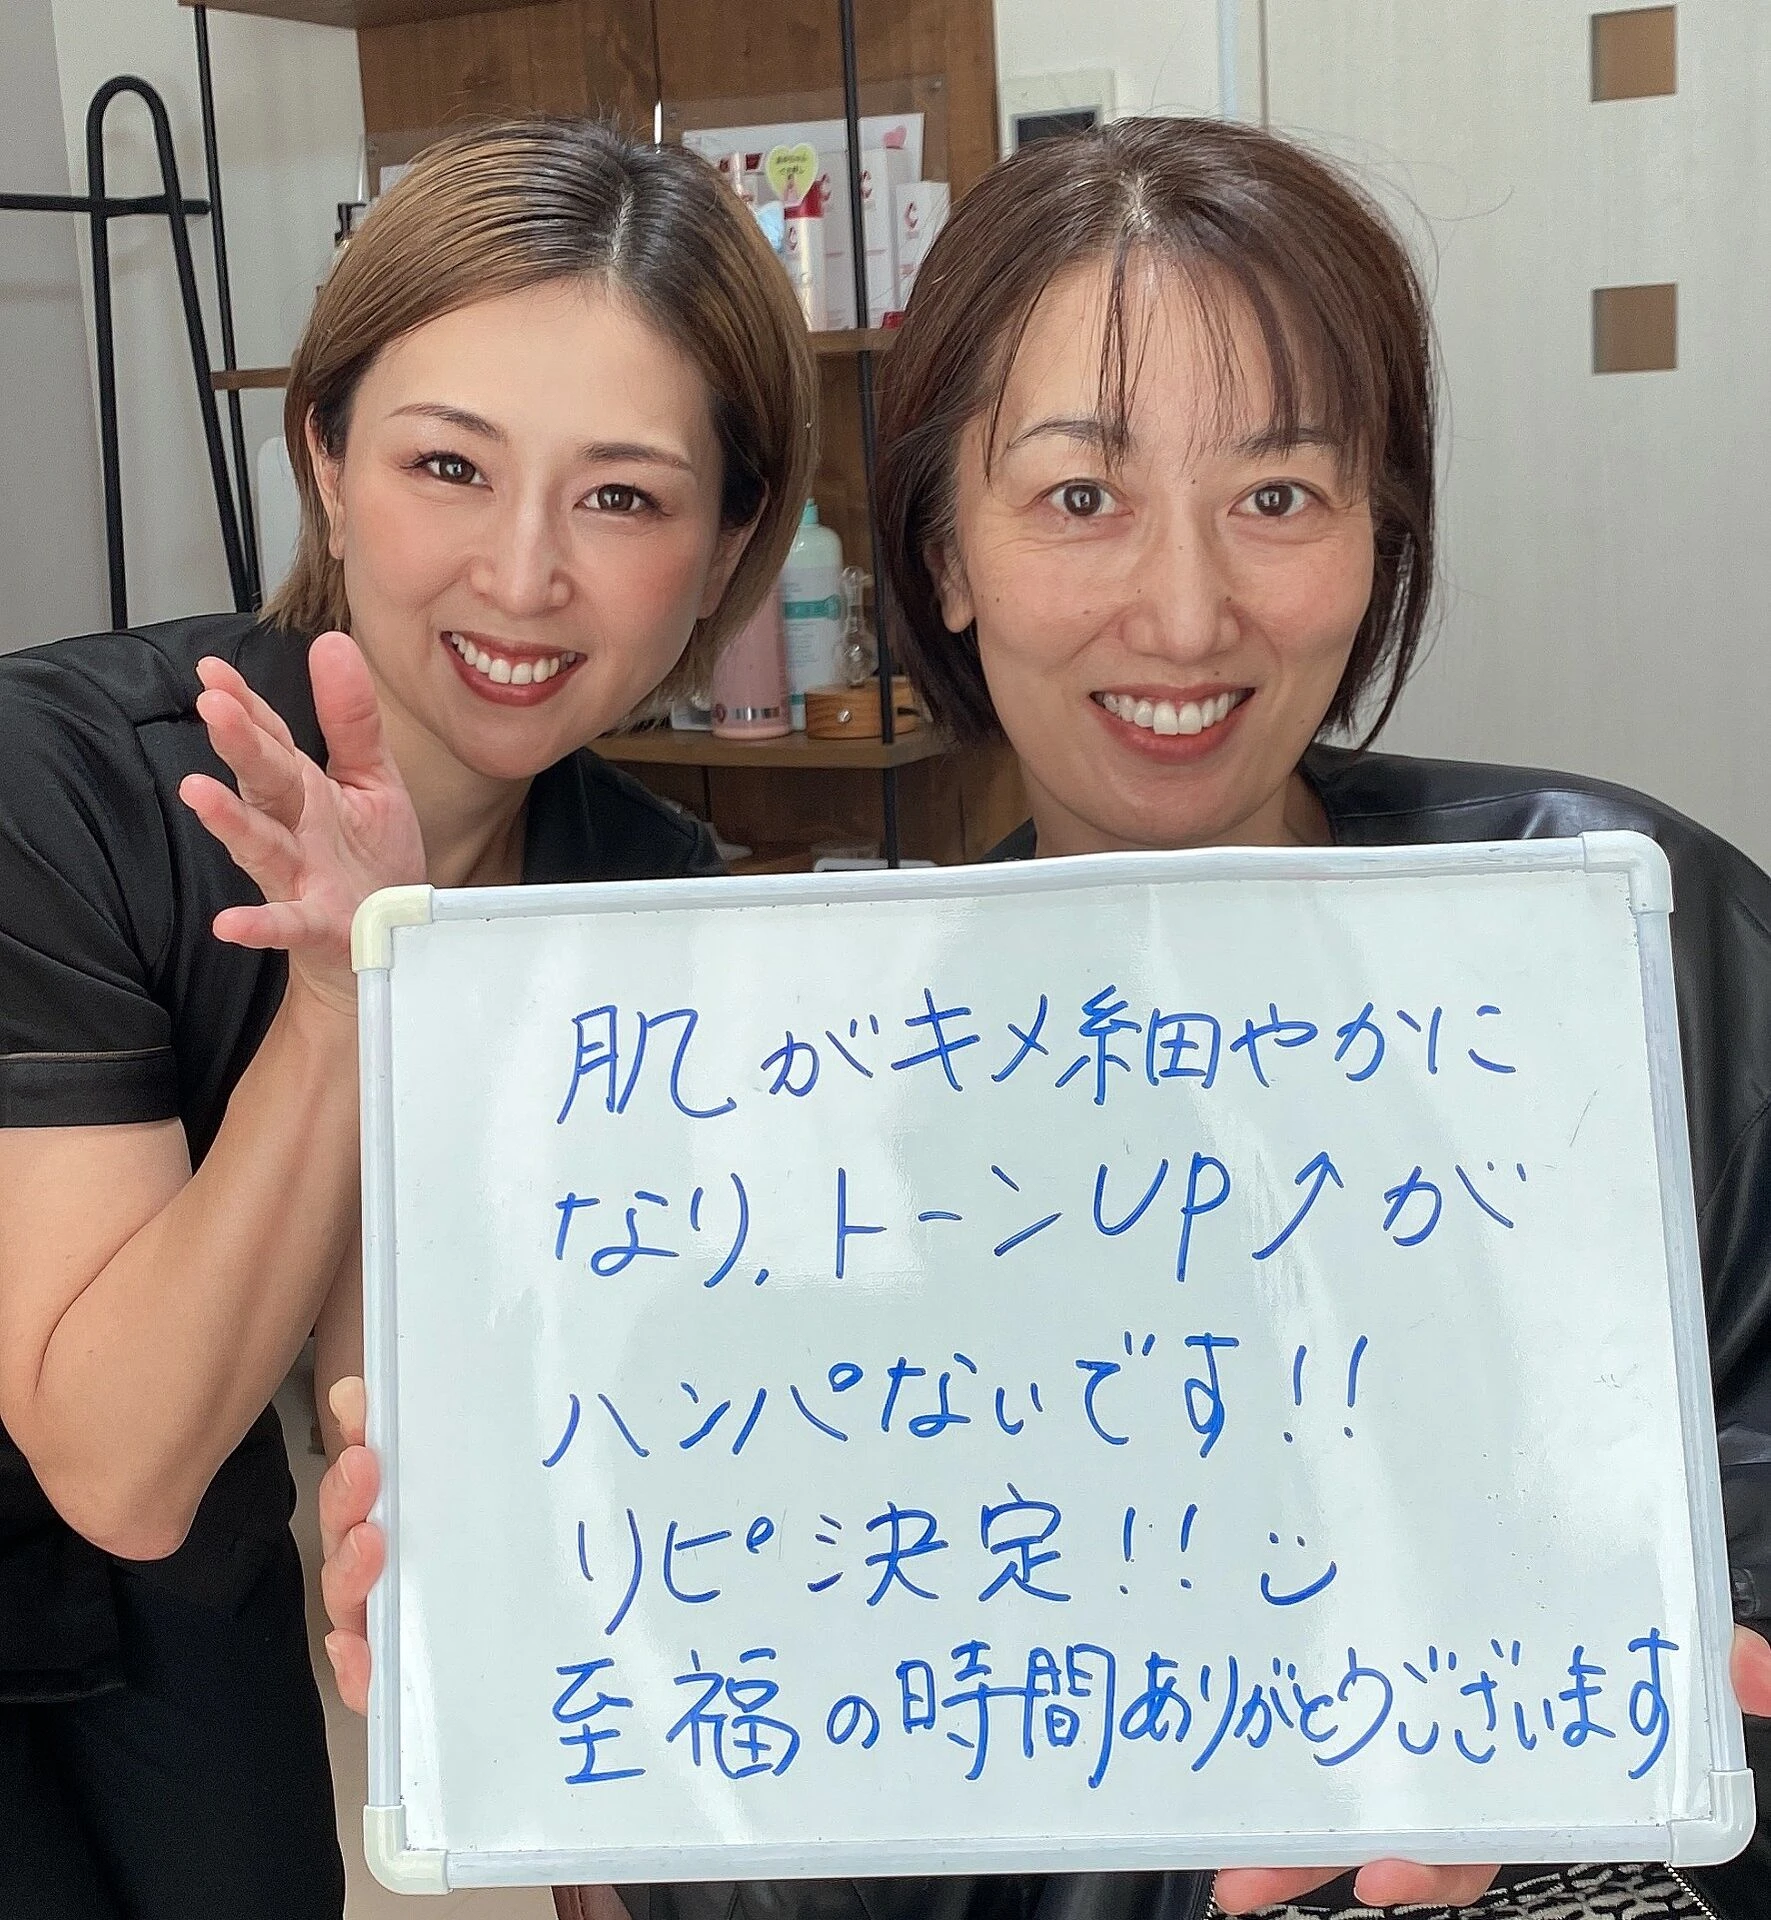 肌がキメ細やかに
なり、トーンUP↑が
ハンパないです!!
リピ決定!! 
至福の時間ありがとうございます